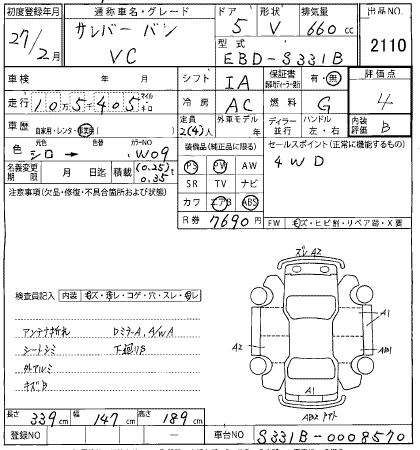 初度登録年月 通称車名・グレード ドア 形状 排気量 出品No.
27年 2月 サンバー バン VC 5 V 660cc 2110
型式 EBD-S331B
車検 年 月 シフト IA 保証書 有・無 評価点
走行 10万5405 マイル キロ 冷房 AC 燃料 G 4
車歴 自家用・レンタ・事業用 定員 2(4)人 外車モデル 年 ディーラー 並行 ハンドル 左・右 内装評価 B
色 元色 シロ → 色替 カラーNO W09 装備品(純正品に限る) セールスポイント(正常に機能するもの)
4WD
名義変更期限 月 日迄 積載 (0.25) 0.35 t PS PW AW
SR TV ナビ
注意事項(欠品・修復・不具合箇所および状態) カワ エアB ABS
R券 7690円 FW キズ・ヒビ割・リペア跡・X要
ズレ A2
検査員記入 内装 キズ・汚レ・コゲ・穴・スレ・剥レ
アンテナ折れ DミラーA, A/WA
シートシミ 下廻りS
外アルミ
キズB
A2 A1 AB1 A1
長さ 339cm 幅 147cm 高さ 189cm
登録NO 車台NO S331B-0008570